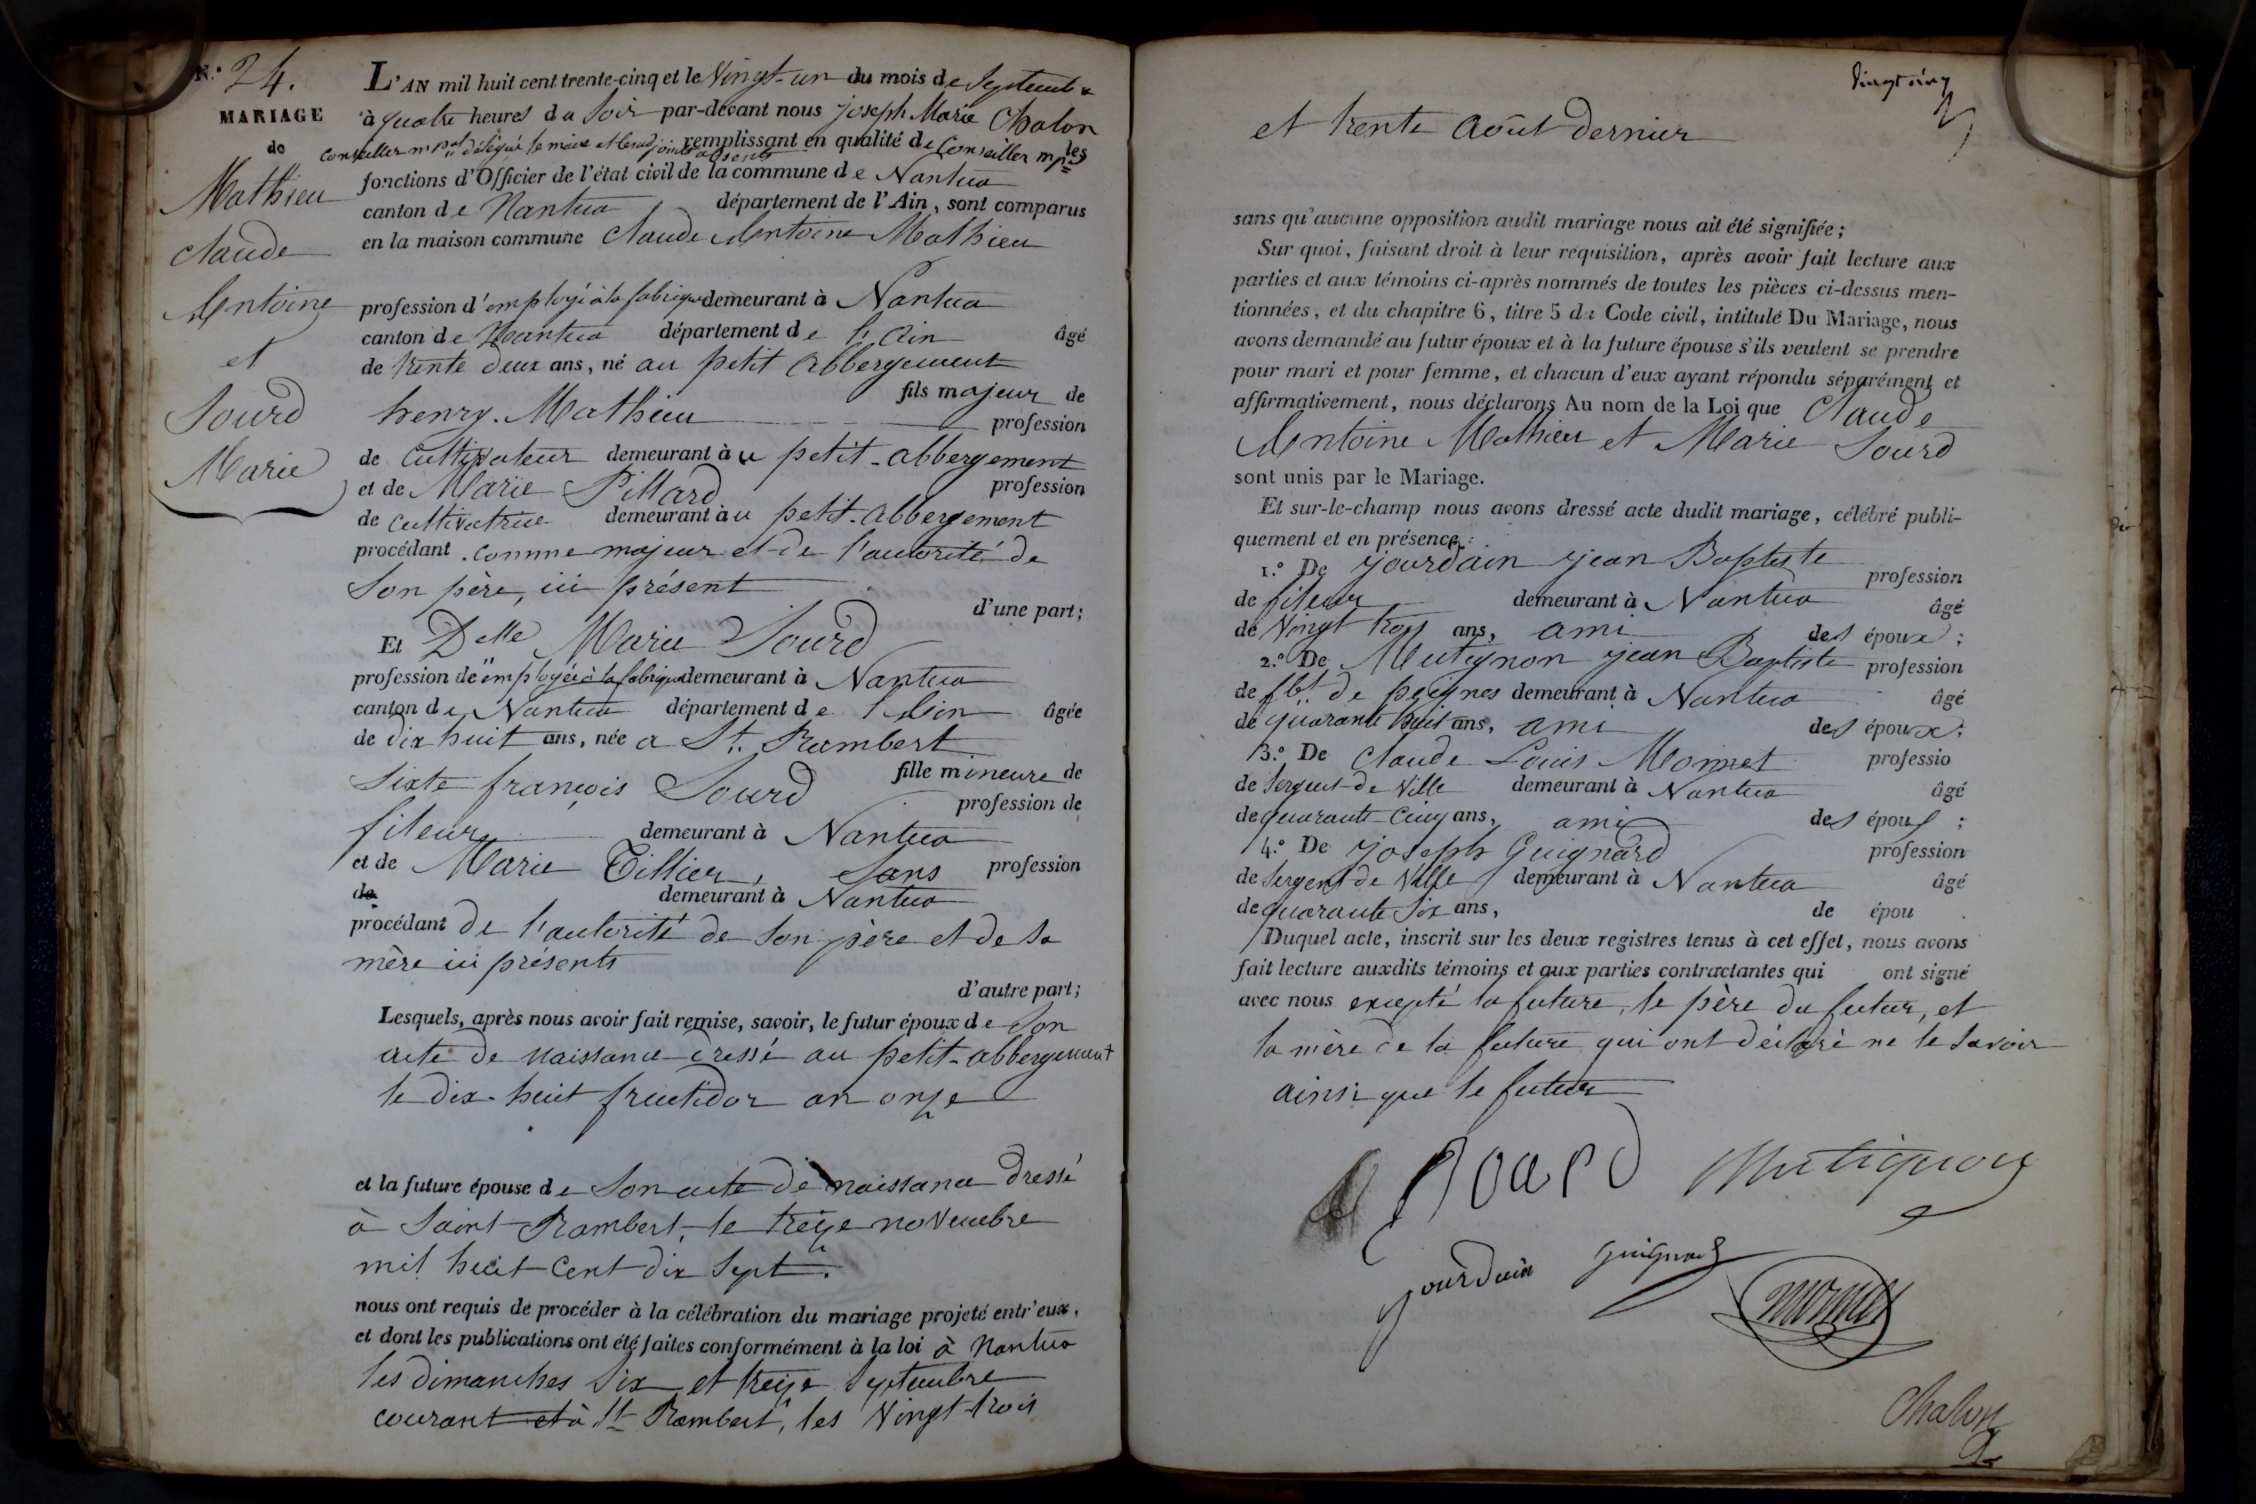 N.º 24.
MARIAGE
de
Mathieu
Claude
Antoine
et
Sourd
Marie
L'AN mil huit cent trente-cinq et le Vingt-un du mois de Septembre
à quatre heures du Soir par-devant nous joseph Marie Chalon
Conseiller mpal délégué le maire et les adjoints absents remplissant en qualité de Conseiller mpal les
fonctions d'Officier de l'état civil de la commune de Nantua
canton de Nantua département de l'Ain, sont comparus
en la maison commune Claude Antoine Mathieu
profession d'employé à la fabrique demeurant à Nantua
canton de Nantua département de l'ain âgé
de trente deux ans, né au petit Abbergement
fils majeur de
henry Mathieu profession
de Cultivateur demeurant à u petit-abbergement
et de Marie Pillard profession
de cultivatrice demeurant à u petit-abbergement
procédant comme majeur et de l'autorité de
Son père, ici présent
d'une part;
Et Delle Marie Sourd
profession de employée à la fabrique demeurant à Nantua
canton de Nantua département de l'Ain âgée
de dix huit ans, née a St. Rambert
fille mineure de
Sixte françois Sourd profession de
fileur demeurant à Nantua
et de Marie Tillier, Sans profession
de demeurant à Nantua
procédant de l'autorité de Son père et de Sa
mère ici présents
d'autre part;
Lesquels, après nous avoir fait remise, savoir, le futur époux de Son
acte de naissance dressé au petit-abbergement
le dix-huit fructidor an onze
et la future épouse de Son acte de naissance dressé
à Saint Rambert, le treize novembre
mil huit Cent dix Sept.
nous ont requis de procéder à la célébration du mariage projeté entr'eux,
et dont les publications ont été faites conformément à la loi à Nantua
les dimanches Six et treize Septembre
courant et à St Rambert, les Vingt-trois
Vingt cinq
et trente Août dernier
sans qu'aucune opposition audit mariage nous ait été signifiée;
Sur quoi, faisant droit à leur requisition, après avoir fait lecture aux
parties et aux témoins ci-après nommés de toutes les pièces ci-dessus men-
tionnées, et du chapitre 6, titre 5 du Code civil, intitulé Du Mariage, nous
avons demandé au futur époux et à la future épouse s'ils veulent se prendre
pour mari et pour femme, et chacun d'eux ayant répondu séparément et
affirmativement, nous déclarons Au nom de la Loi que Claude
Antoine Mathieu et Marie Sourd
sont unis par le Mariage.
Et sur-le-champ nous avons dressé acte dudit mariage, célébré publi-
quement et en présence:
1.º De jourdain jean Baptiste profession
de fileur demeurant à Nantua âgé
de Vingt trois ans, ami des époux;
2.º De Mutignon jean Baptiste profession
de fbt de peignes demeurant à Nantua âgé
de quarante huit ans, ami des époux;
3.º De Claude Louis Monnet professio
de Sergent de Ville demeurant à Nantua âgé
de quarante Cinq ans, ami des époux;
4.º De joseph Guignard profession
de Sergent de Ville demeurant à Nantua âgé
de quarante Six ans, de épou
Duquel acte, inscrit sur les deux registres tenus à cet effet, nous avons
fait lecture auxdits témoins et aux parties contractantes qui ont signé
avec nous excepté la future, le père du futur, et
la mère de la future qui ont déclaré ne le Savoir
ainsi que le futur
Mutignon
jourdain guignard
monnet
Chalon